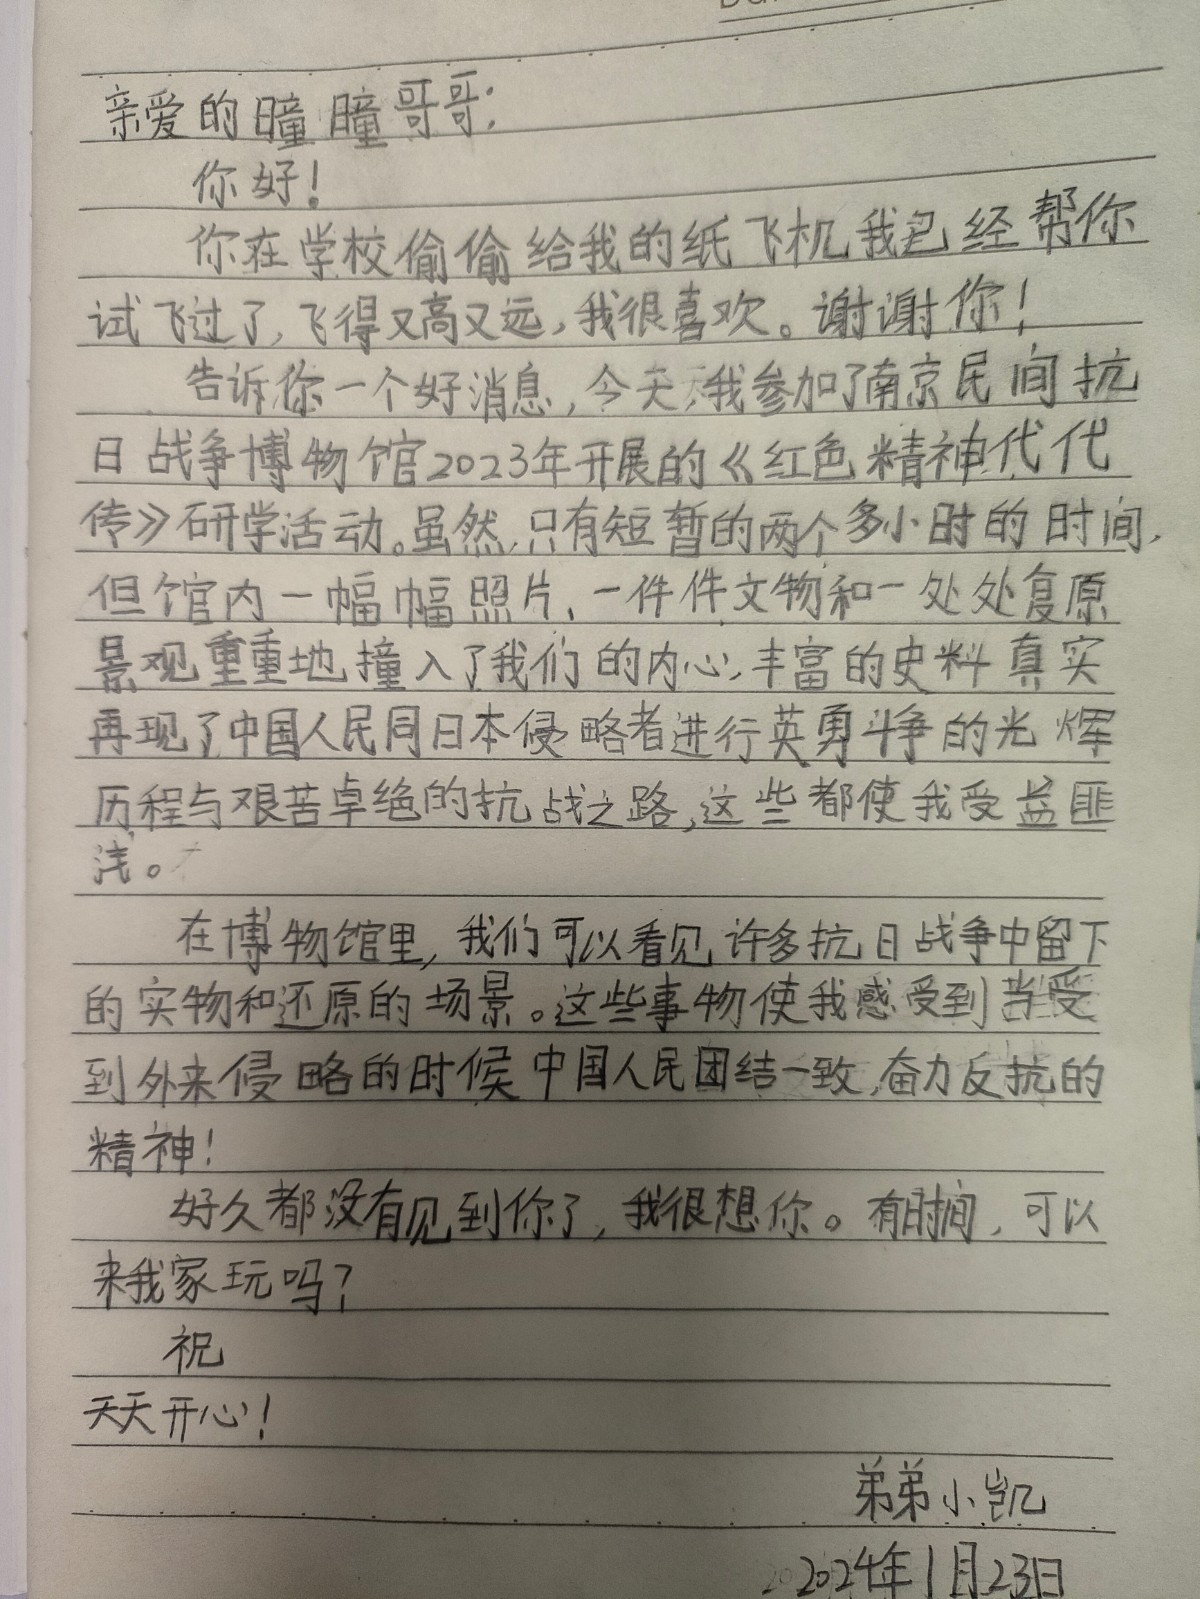 亲爱的瞳瞳哥哥:
你好!
你在学校偷偷给我的纸飞机我已经帮你
试飞过了,飞得又高又远,我很喜欢。谢谢你!
告诉你一个好消息,今天,我参加了南京民间抗
日战争博物馆2023年开展的《红色精神代代
传》研学活动。虽然,只有短暂的两个多小时的时间,
但馆内一幅幅照片、一件件文物和一处处复原
景观重重地撞入了我们的内心,丰富的史料真实
再现了中国人民同日本侵略者进行英勇斗争的光辉
历程与艰苦卓绝的抗战之路,这些都使我受益匪
浅。
在博物馆里,我们可以看见许多抗日战争中留下
的实物和还原的场景。这些事物使我感受到当受
到外来侵略的时候中国人民团结一致,奋力反抗的
精神!
好久都没有见到你了,我很想你。有时间,可以
来我家玩吗?
祝
天天开心!
弟弟小凯
2024年1月23日